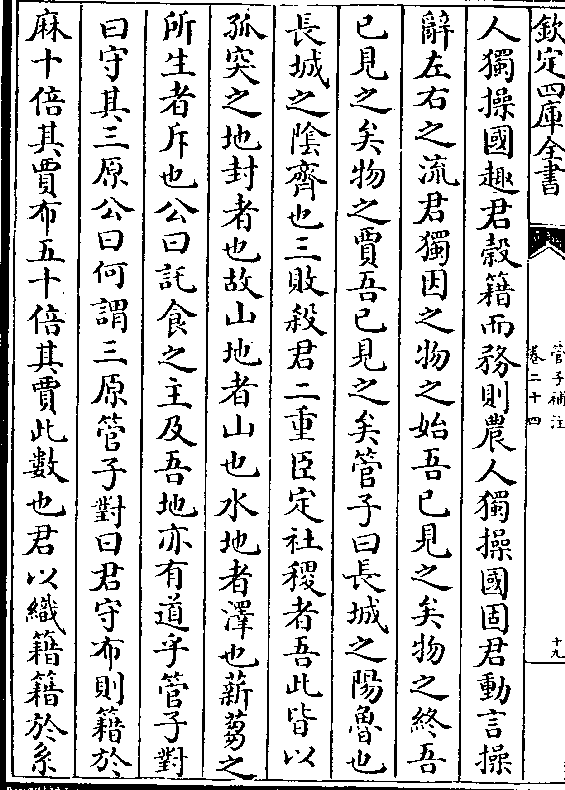 欽定四庫全書
管子補注
卷二十四
十九
人獨操國趣君穀籍而務則農人獨操國固君動言操
辭左右之流君獨因之物之始吾已見之矣物之終吾
已見之矣物之賈吾已見之矣管子曰長城之陽魯也
長城之陰齊也三敗殺君二重臣定社稷者吾此皆以
孤突之地封者也故山地者山也水地者澤也薪芻之
所生者斥也公曰託食之主及吾地亦有道乎管子對
曰守其三原公曰何謂三原管子對曰君守布則籍於
麻十倍其賈布五十倍其賈此數也君以織籍籍於系